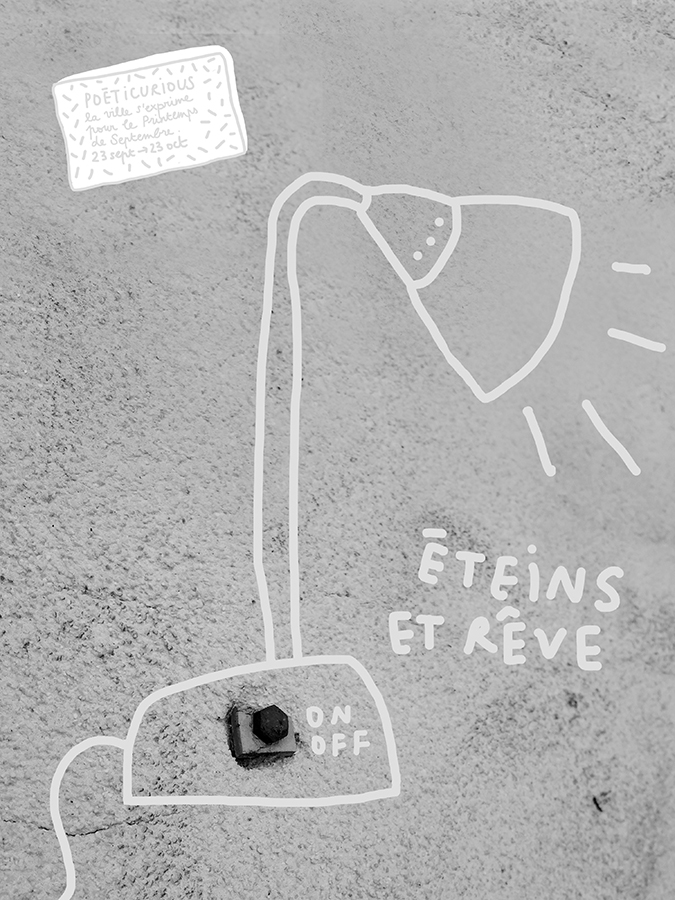 POĒTiCURiOUS
la ville s'exprime
pour le Printemps
de Septembre.
23 sept → 23 oct
ĒTEiNS
ET RÊVE
ON
OFF